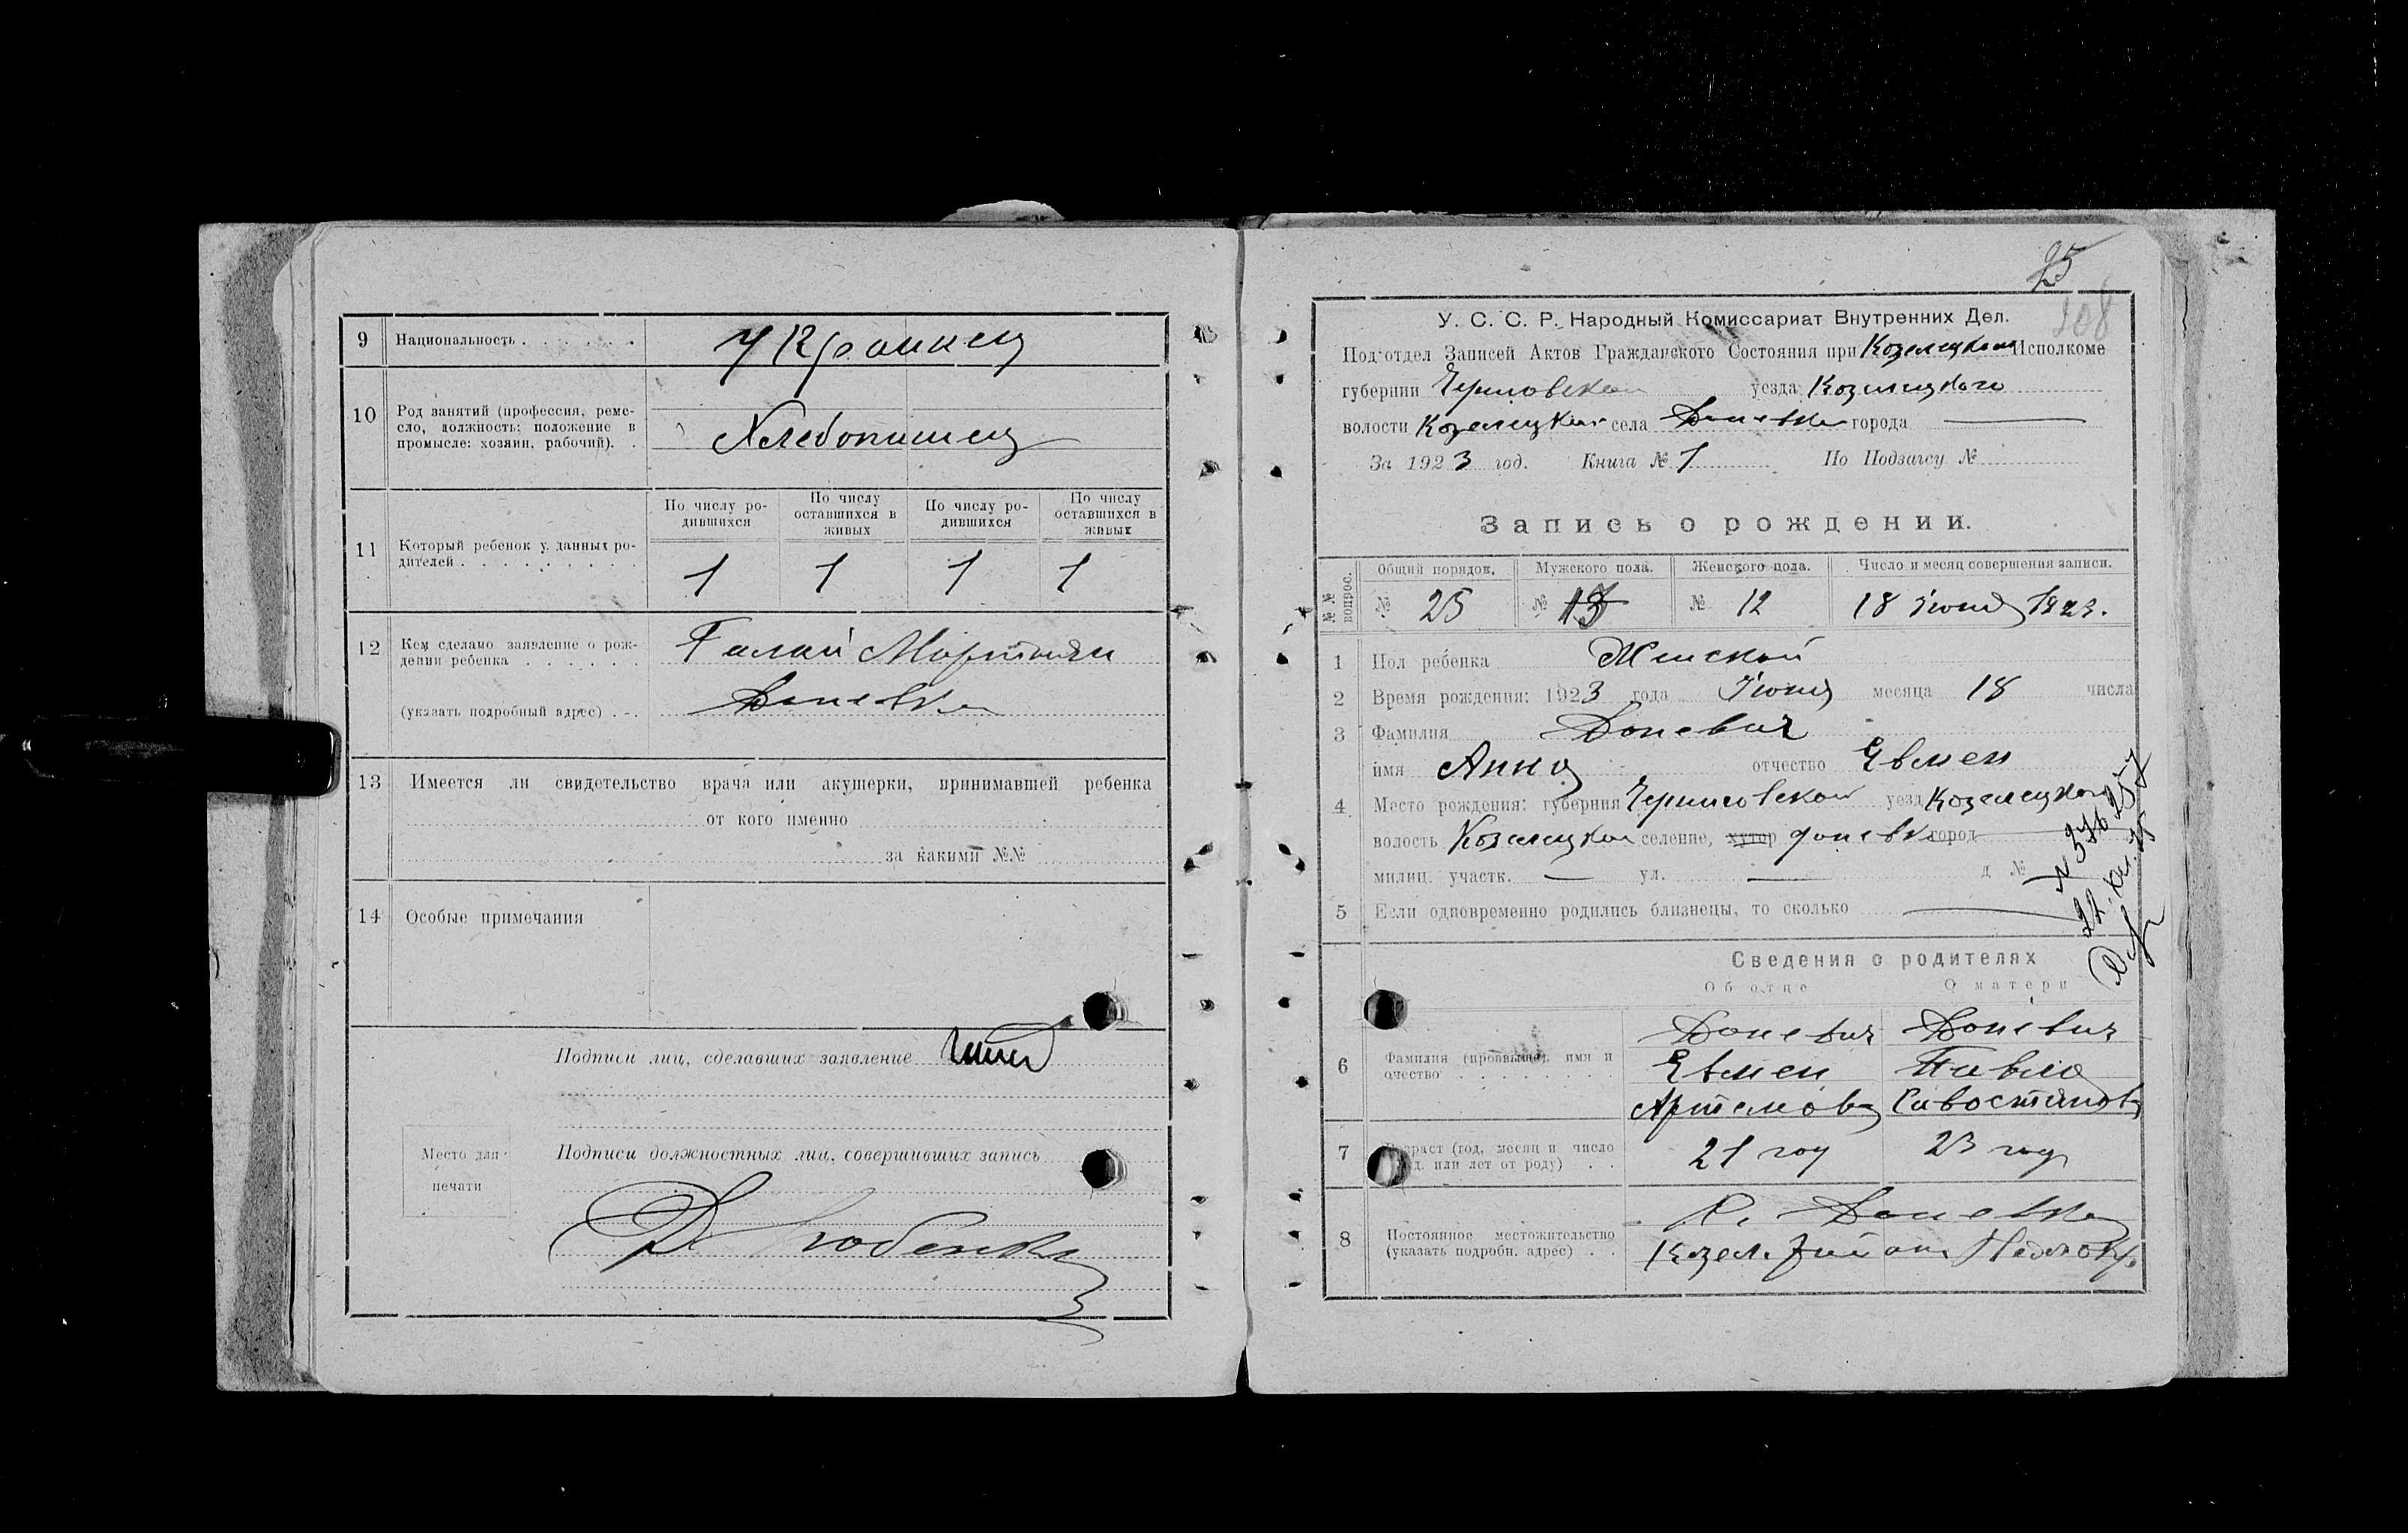 9 Национальность . . . . . . . Украинец
10 Род занятий (профессия, реме-
сло, должность; положение в
промысле: хозяин, рабочий). . Хлебопашец
По числу ро-
дившихся
По числу
оставшихся в
живых
По числу ро-
дившихся
По числу
оставшихся в
живых
11 Который ребенок у данных ро-
дителей . . . . . . . . . 1 1 1 1
12 Кем сделано заявление о рож-
дении ребенка . . . . . . Галай
(указать подробный адрес) . . . Даневка
13 Имеется ли свидетельство врача или акушерки, принимавшей ребенка
от кого именно
за какими №№
14 Особые примечания
Подписи лиц, сделавших заявление
Место для
печати
Подписи должностных лиц, совершивших запись
25
208
У. С. С. Р. Народный Комиссариат Внутренних Дел.
Подотдел Записей Актов Гражданского Состояния при Козелецком Исполкоме
губернии Черниговской уезда Козелецкого
волости Козелецкой села Даневка города —
За 1923 год. Книга № 1 По Подзагсу №
Запись о рождении.
№ № вопрос.
Общий порядок. Мужского пола. Женского пола. Число и месяц совершения записи.
№ 25 № 13 № 12 18 июня 1923.
1 Пол ребенка Женской
2 Время рождения: 1923 года Июня месяца 18 числа
3 Фамилия Доневич
имя Анна отчество Евмен
4 Место рождения: губерния Черниговской уезд Козелецкой
волость Козелецкой селение, хутор доневк город —
милиц. участк. — ул. — д №
5 Если одновременно родились близнецы, то сколько —
Сведения о родителях
Об отце О матери
6 Фамилия (прозвыще), имя и
очество . . . . . . . . .
Доневич Доневич
Евмен Павла
Артемова Савостянов
7 Возраст (год, месяц и число
рожд. или лет от роду) . . 21 год 23 год
8 Постоянное местожительство
(указать подробн. адрес) . .
С. Доневка